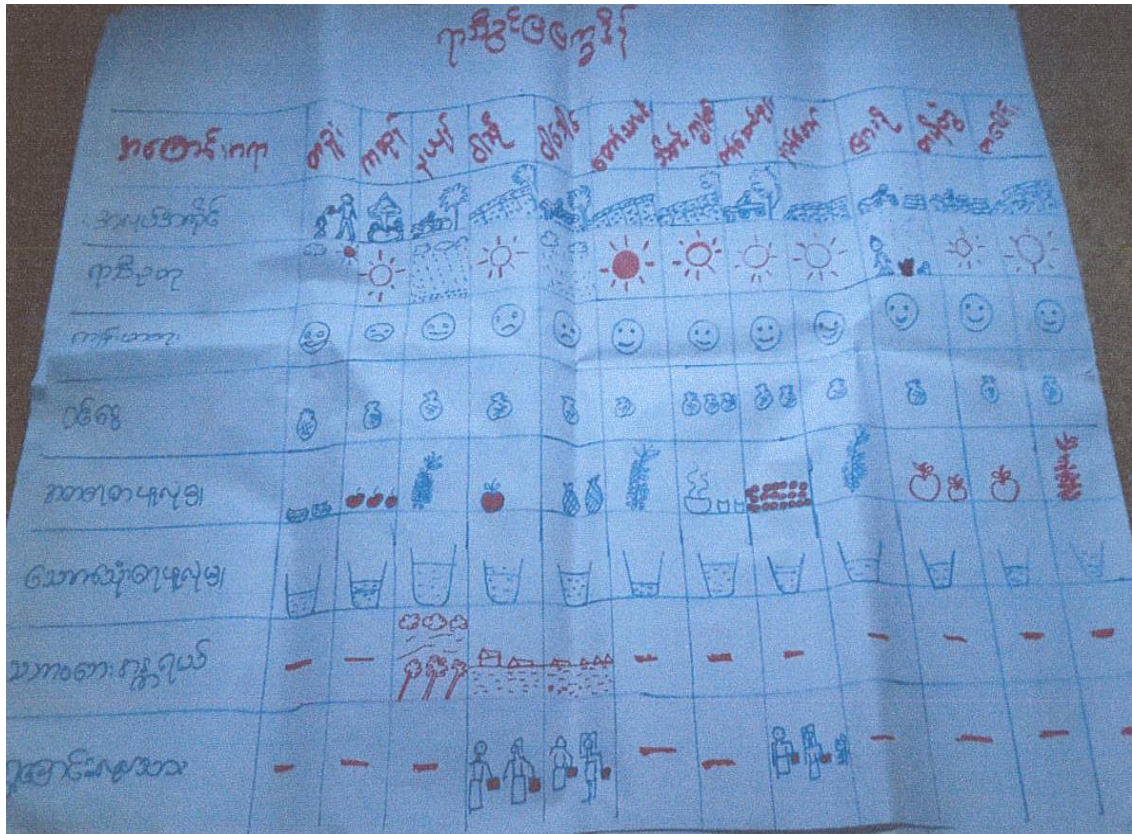 ရာသီခွင်ပြက္ခဒိန်
အကြောင်းအရာ တန်ခူး ကဆုန် နယုန် ဝါဆို ဝါခေါင် တော်သလင်း သီတင်းကျွတ် တန်ဆောင်မုန်း နတ်တော် ပြာသို တပို့တွဲ တပေါင်း
အလုပ်အကိုင်
ရာသီဥတု
ကျန်းမာရေး
ဝင်ငွေ
အစားအစာဖူလုံမှု
သောက်သုံးရေဖူလုံမှု
သဘာဝဘေးအန္တရာယ်